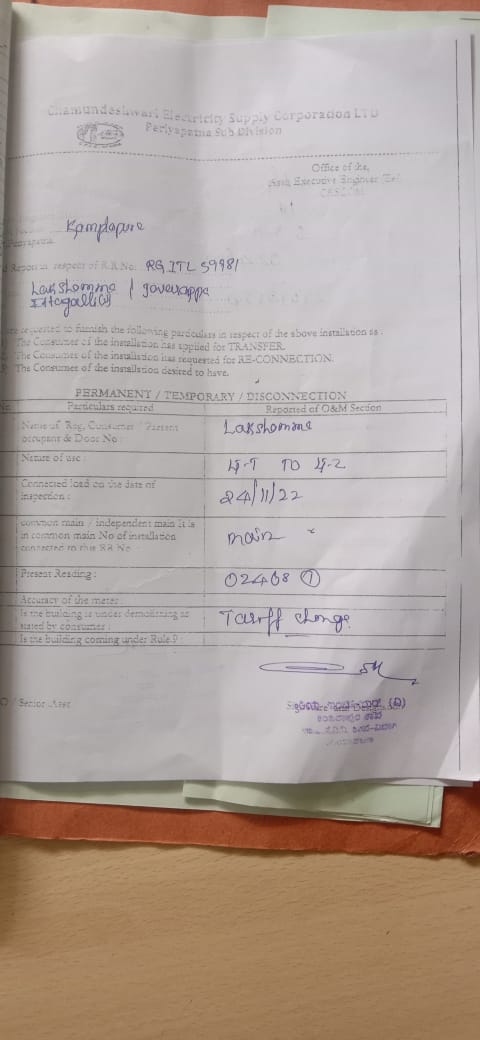 Chamundeshwari Electricity Supply Corporation LTD
Periyapatna Sub Division
Office of the,
Asst. Executive Engineer (Ele)
CESCOM
Kamplapura
Periyapatna
Report in respect of R.R No. RGITL 59981
Lakshamma / Javarappa
are requested to furnish the following particulars in respect of the above installation as :
The Consumer of the installation has applied for TRANSFER.
The Consumer of the installation has requested for RE-CONNECTION.
The Consumer of the installation desired to have.
PERMANENT / TEMPORARY / DISCONNECTION
Particulars required Reported of O&M Section
Name of Reg, Consumer / Present Lakshamma
occupant & Door No :
Nature of use :
Connected load on the date of 24/11/22
inspection :
common main / independent main It is main
in common main No of installation
connected to this RR No
Present Reading : 02468 ①
Accuracy of the meter :
Is the building is under demolishing as Tariff change
stated by consumer :
Is the building coming under Rule ? :
/ Senior Asst